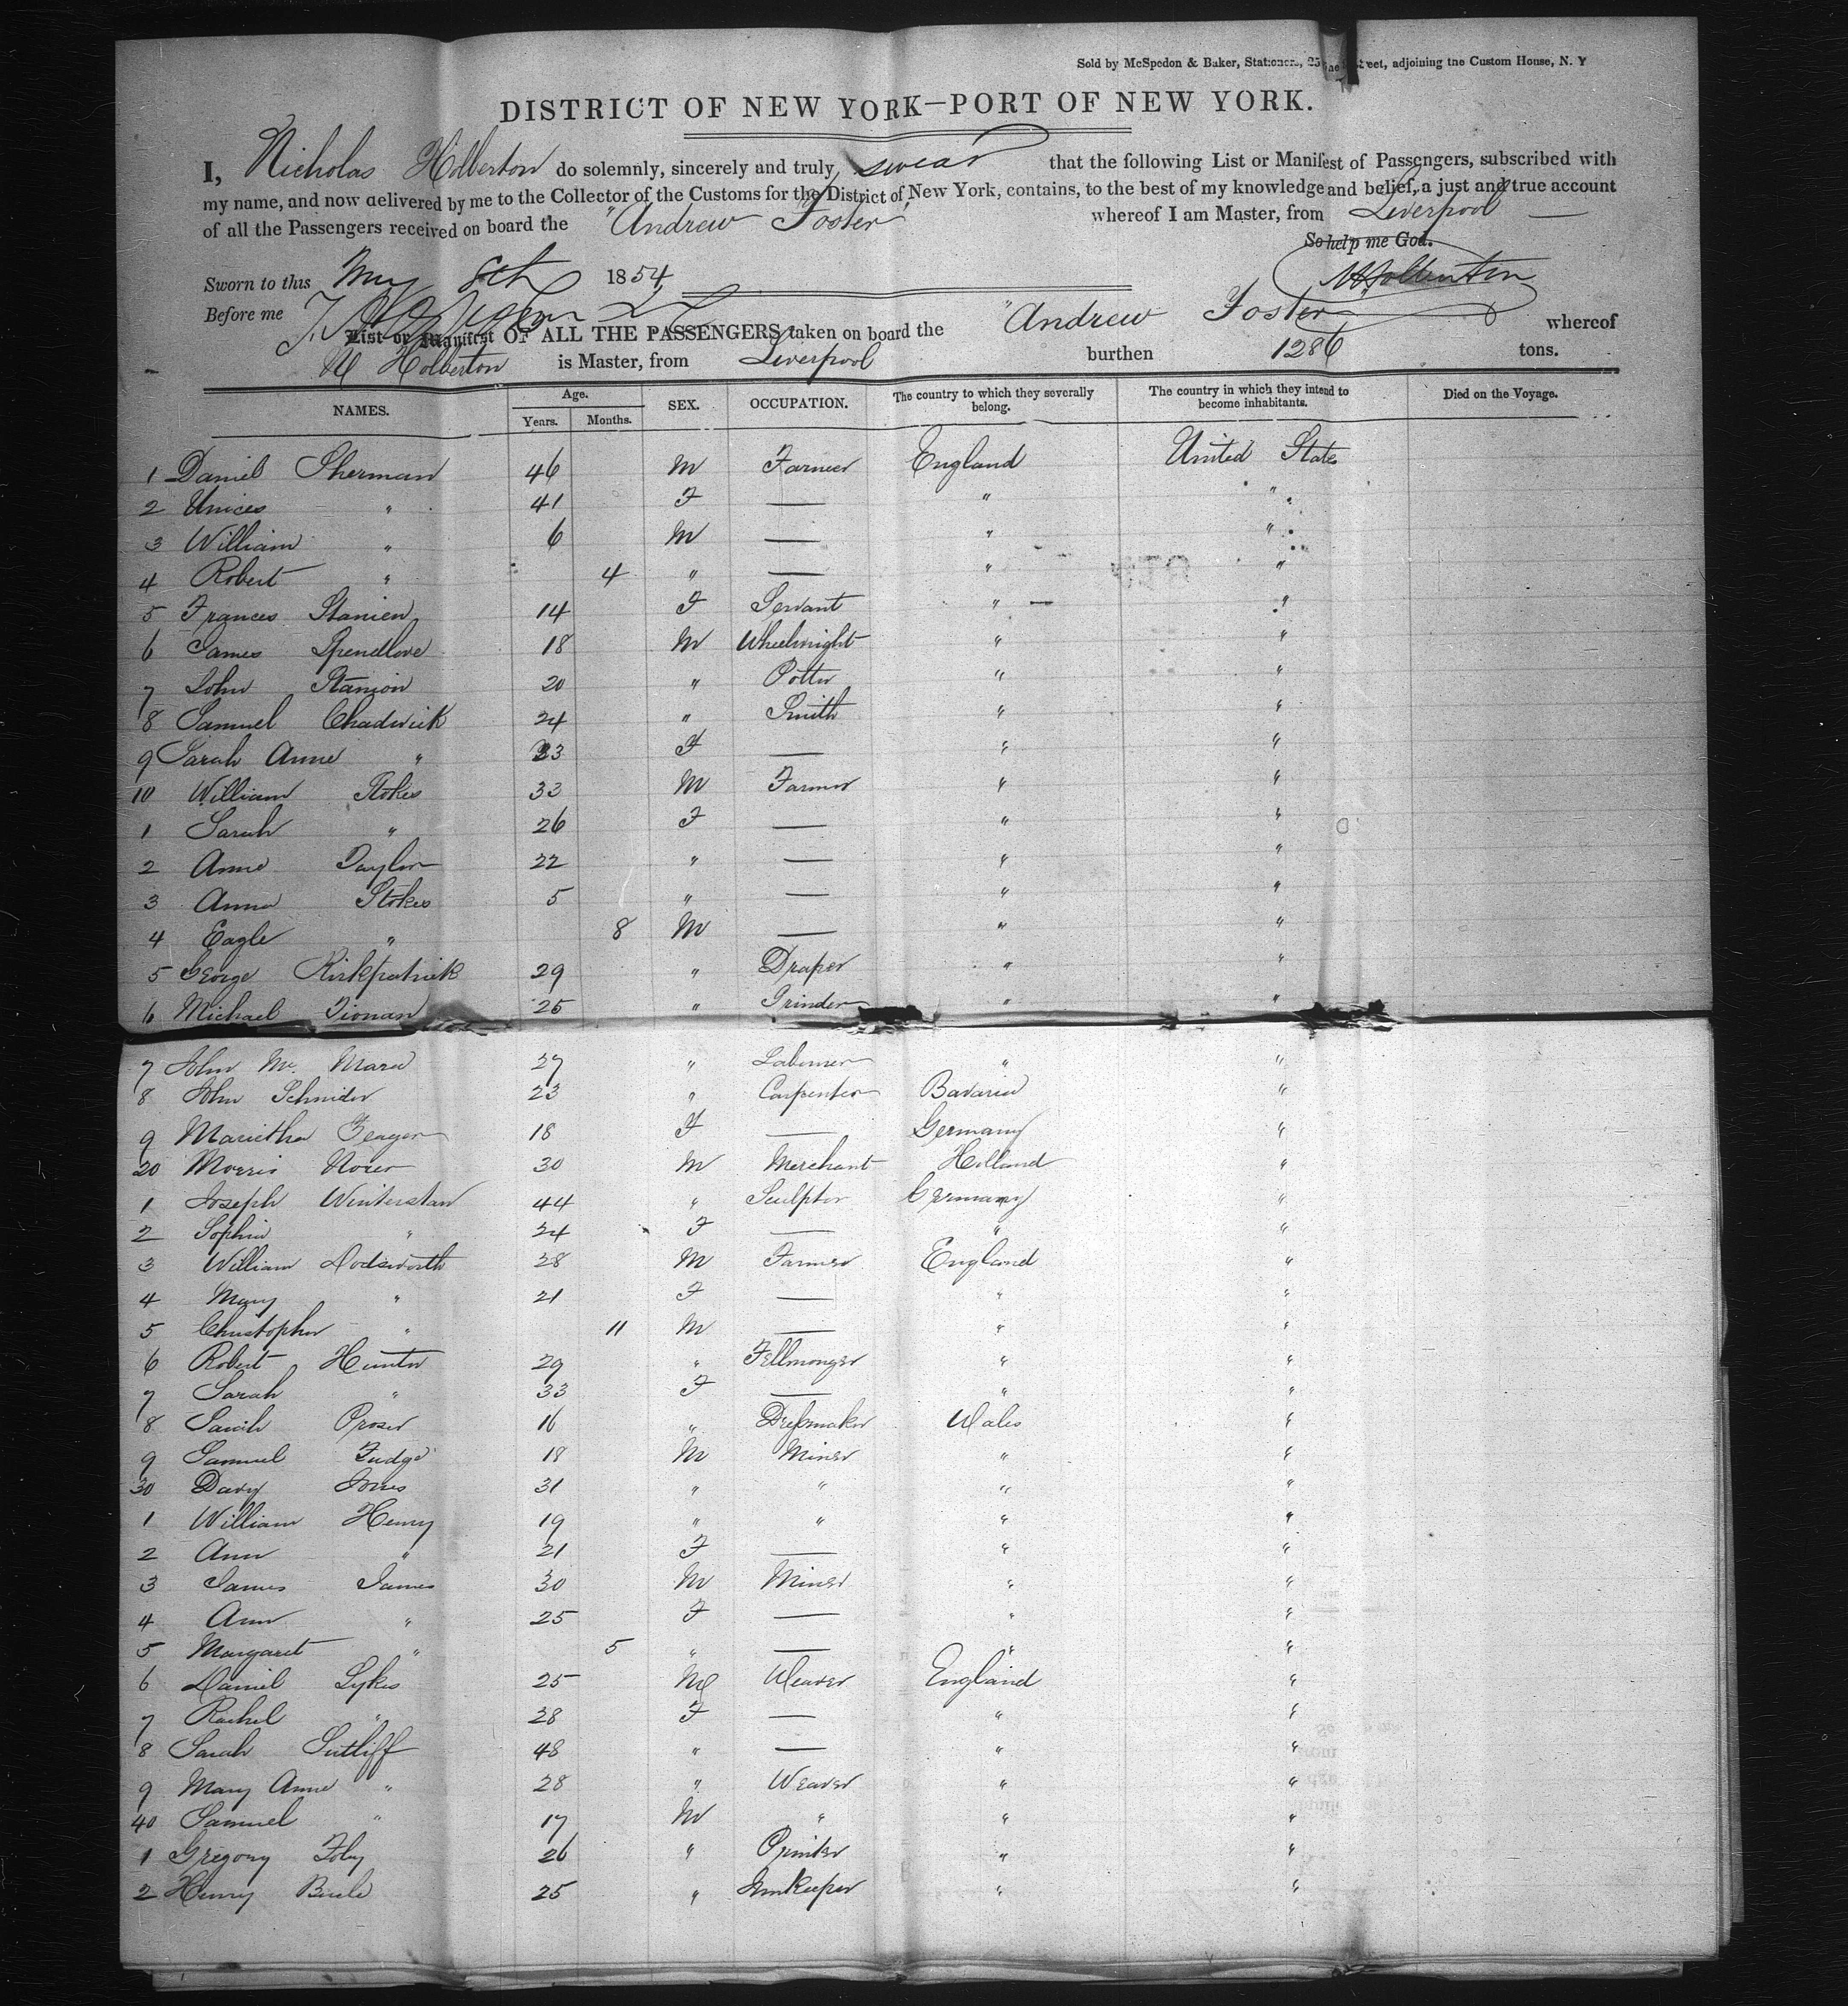 Sold by McSpedon & Baker, Stationers, 25 Pine Street, adjoining the Custom House, N. Y
DISTRICT OF NEW YORK—PORT OF NEW YORK.
I, Nicholas Holberton do solemnly, sincerely and truly swear that the following List or Manifest of Passengers, subscribed with
my name, and now delivered by me to the Collector of the Customs for the District of New York, contains, to the best of my knowledge and belief, a just and true account
of all the Passengers received on board the "Andrew Foster" whereof I am Master, from Liverpool
So help me God.
Sworn to this May 8th 1854 N Holberton
Before me
List or Manifest OF ALL THE PASSENGERS taken on board the "Andrew Foster whereof
N Holberton is Master, from Liverpool burthen 1286 tons.
NAMES. Age. Years. Months. SEX. OCCUPATION. The country to which they severally belong. The country in which they intend to become inhabitants. Died on the Voyage.
1 Daniel Sherman 46 M Farmer England United States
2 Unices " 41 F — " "
3 William " 6 M — " "
4 Robert " 4 " — " "
5 Frances Stanien 14 F Servant " "
6 James Spendlove 18 M Wheelwright " "
7 John Stanion 20 " Potter " "
8 Samuel Chadwick 24 " Smith " "
9 Sarah Anne " 23 F — " "
10 William Stokes 33 M Farmer " "
1 Sarah " 26 F — " "
2 Anne Taylor 22 " — " "
3 Anna Stokes 5 " — " "
4 Eagle " 8 M — " "
5 George Kirkpatrick 29 " Draper " "
6 Michael Tionan 25 " Grinder " "
7 John Mc Mara 27 " Labourer " "
8 John Schnider 23 " Carpenter Bavaria "
9 Marietha Zeager 18 F — Germany "
20 Morris 30 M Merchant Holland "
1 Joseph Winterstan 44 " Sculptor Germany "
2 Sophia " 24 F — " "
3 William Dodsworth 28 M Farmer England "
4 Mary " 21 F — " "
5 Christopher " 11 M — " "
6 Robert Hunter 29 " Fellmonger " "
7 Sarah " 33 F — " "
8 Sarah Proser 16 " Dressmaker Wales "
9 Samuel Fudge 18 M Miner " "
30 Davy Jones 31 " " " "
1 William Henry 19 " " " "
2 Ann " 21 F — " "
3 James James 30 M Miner " "
4 Ann " 25 F — " "
5 Margaret " 5 " — " "
6 Daniel Sykes 25 M Weaver England "
7 Rachel " 28 F — " "
8 Sarah Sutliff 48 " — " "
9 Mary Anne " 28 " Weaver " "
40 Samuel " 17 M " " "
1 Gregory Foley 26 " Printer " "
2 Henry 25 " Innkeeper " "